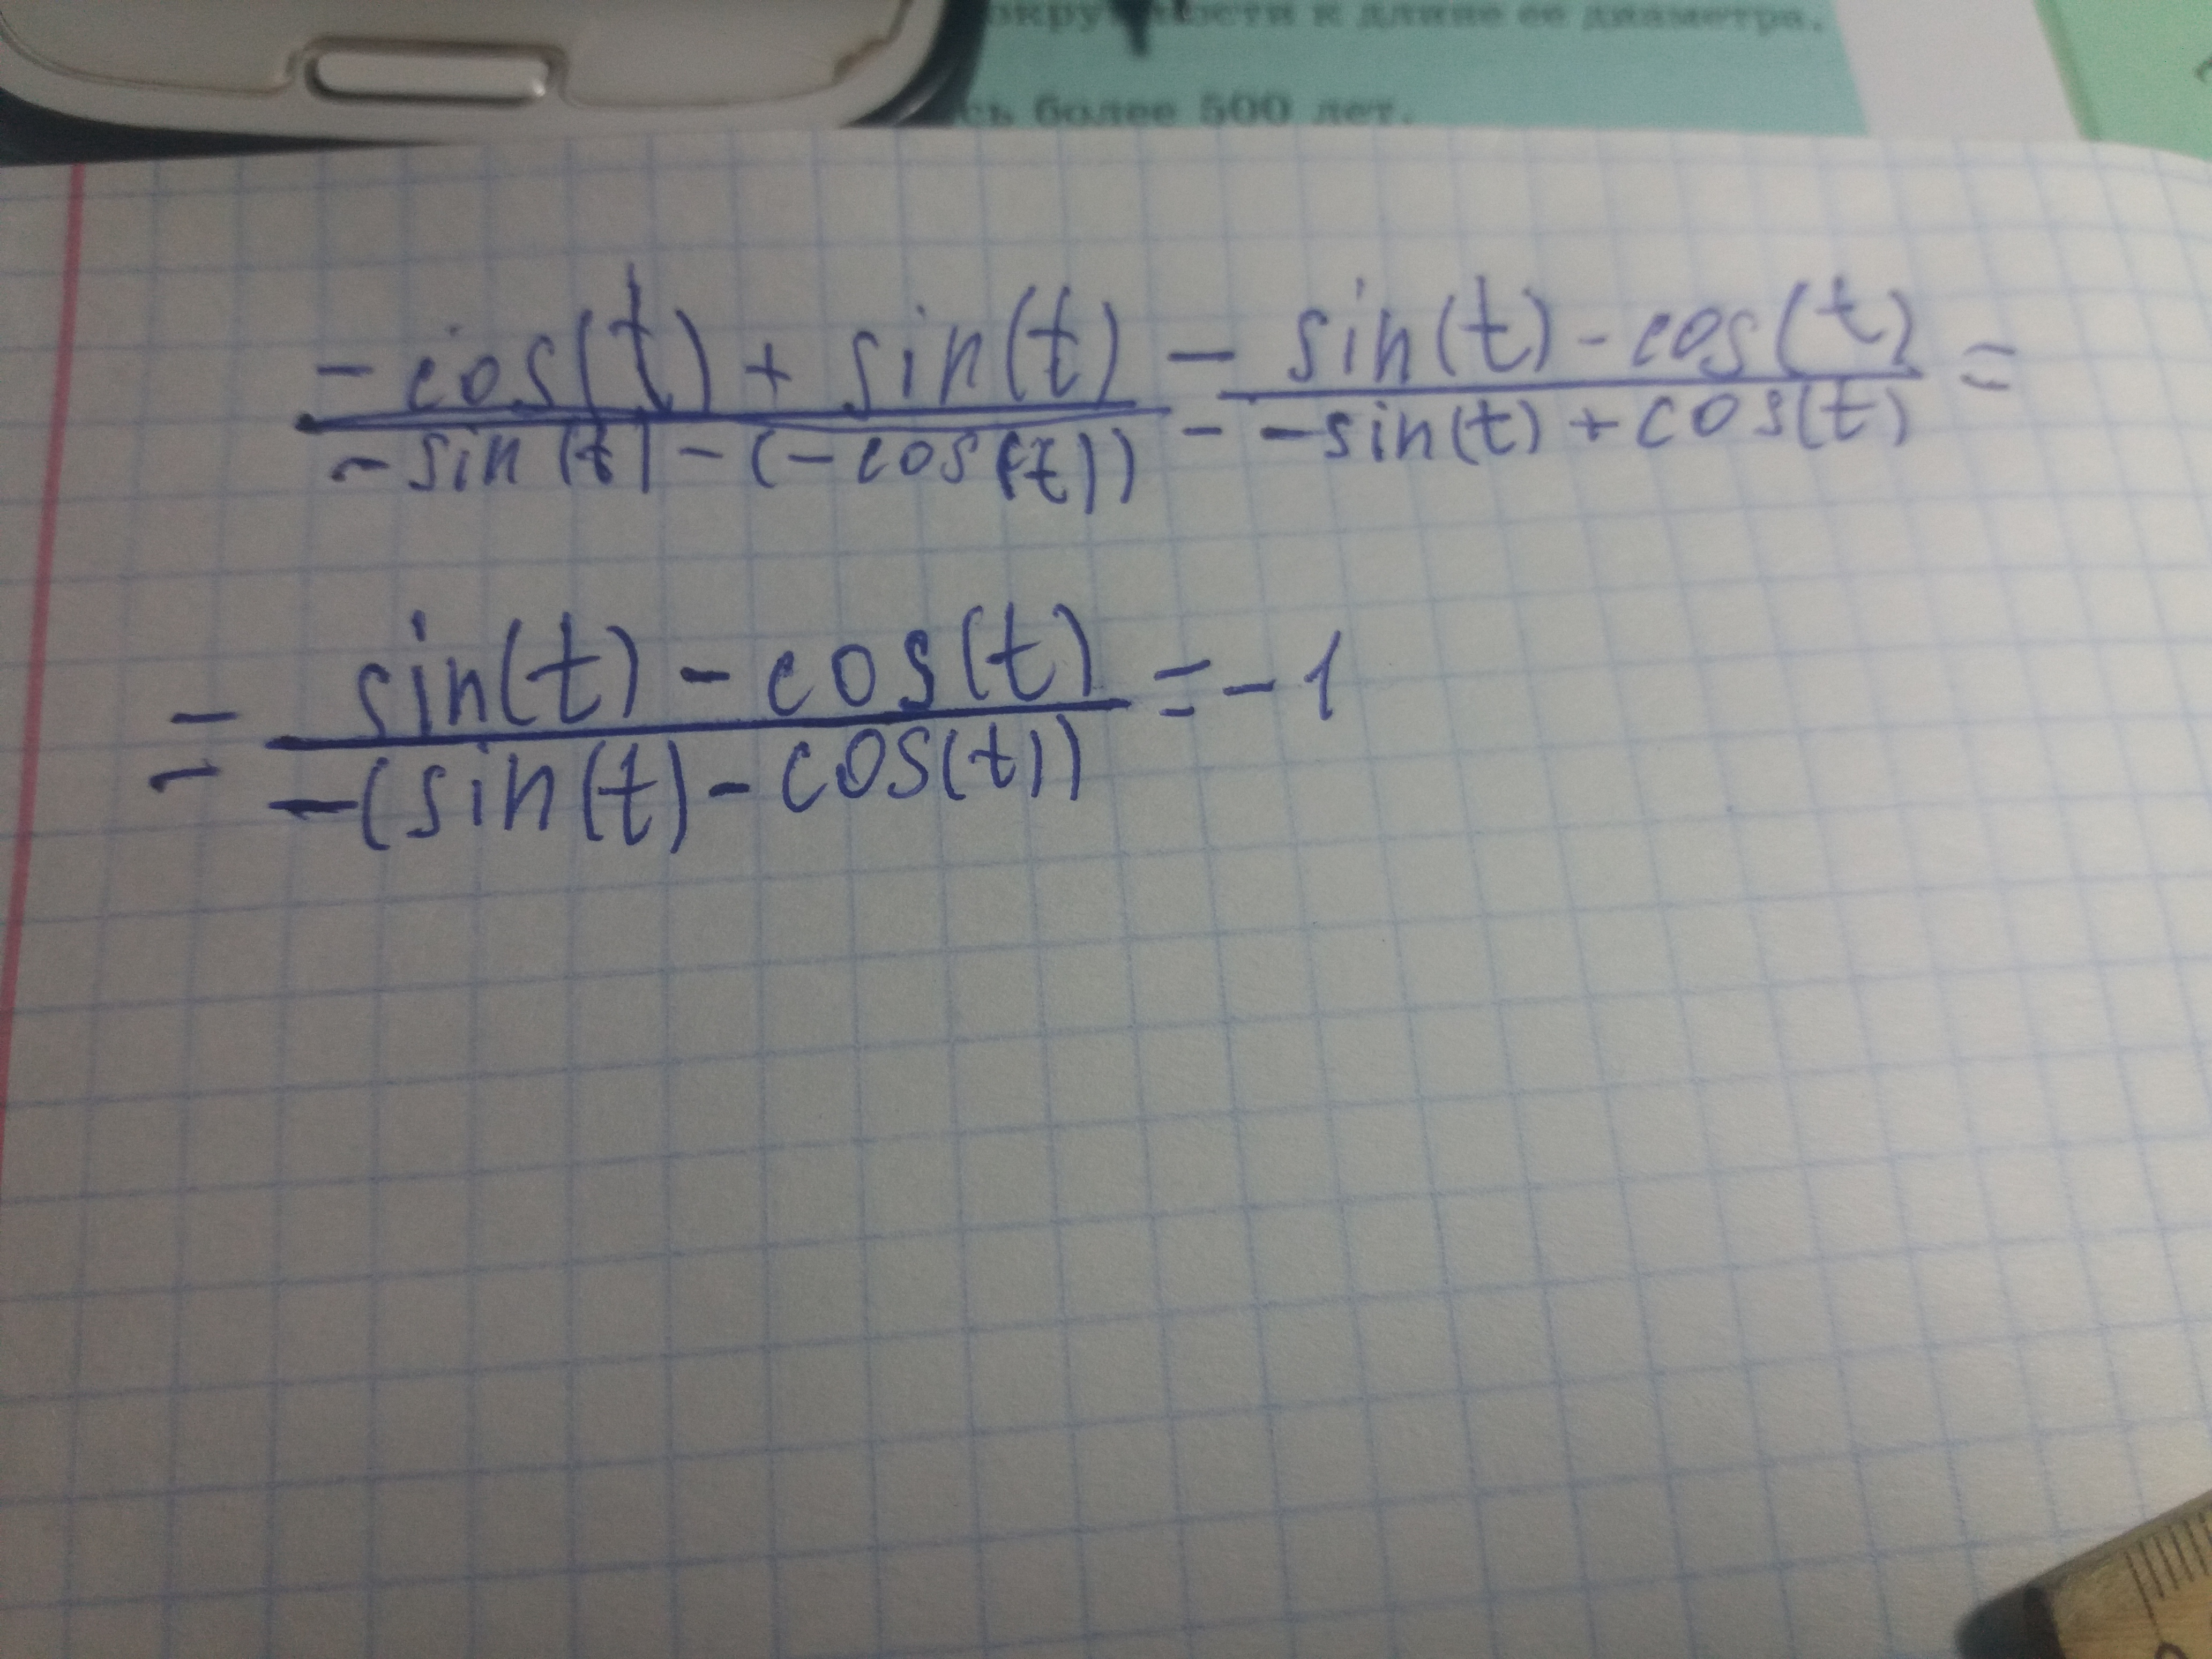 ности к длине ее диаметра.
сь более 500 лет.
-cos(t) + sin(t) = sin(t) - cos(t) =
-sin(t) - (-cos(t)) -sin(t) + cos(t)
= sin(t) - cos(t) = -1
-(sin(t) - cos(t))